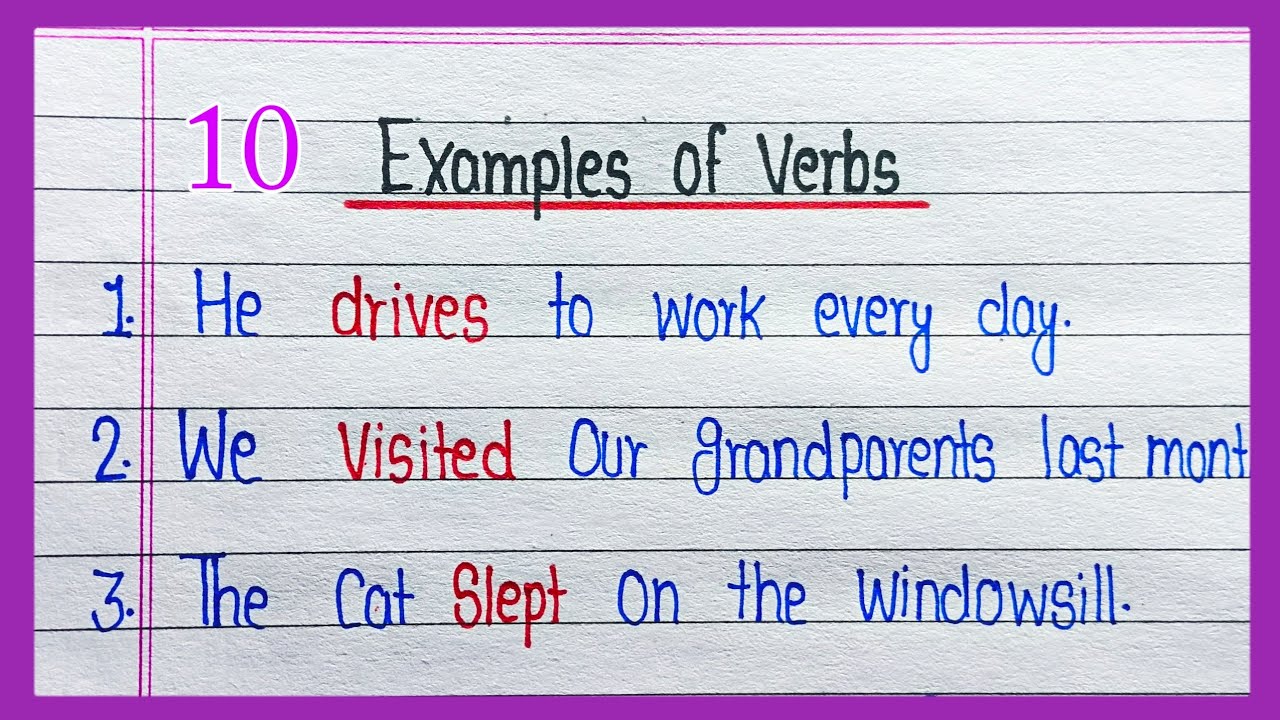 10 Examples of Verbs
1. He drives to work every day.
2. We Visited Our grandparents last mont
3. The Cat Slept on the windowsill.